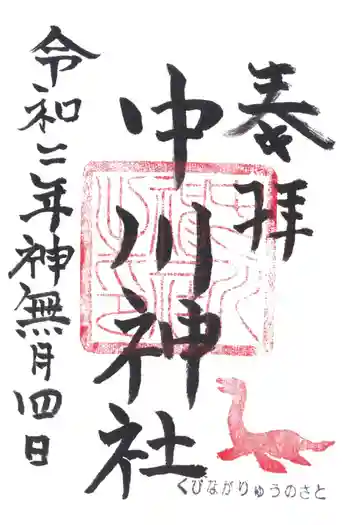 奉拝
中川神社
令和二年神無月四日
くびながりゅうのさと